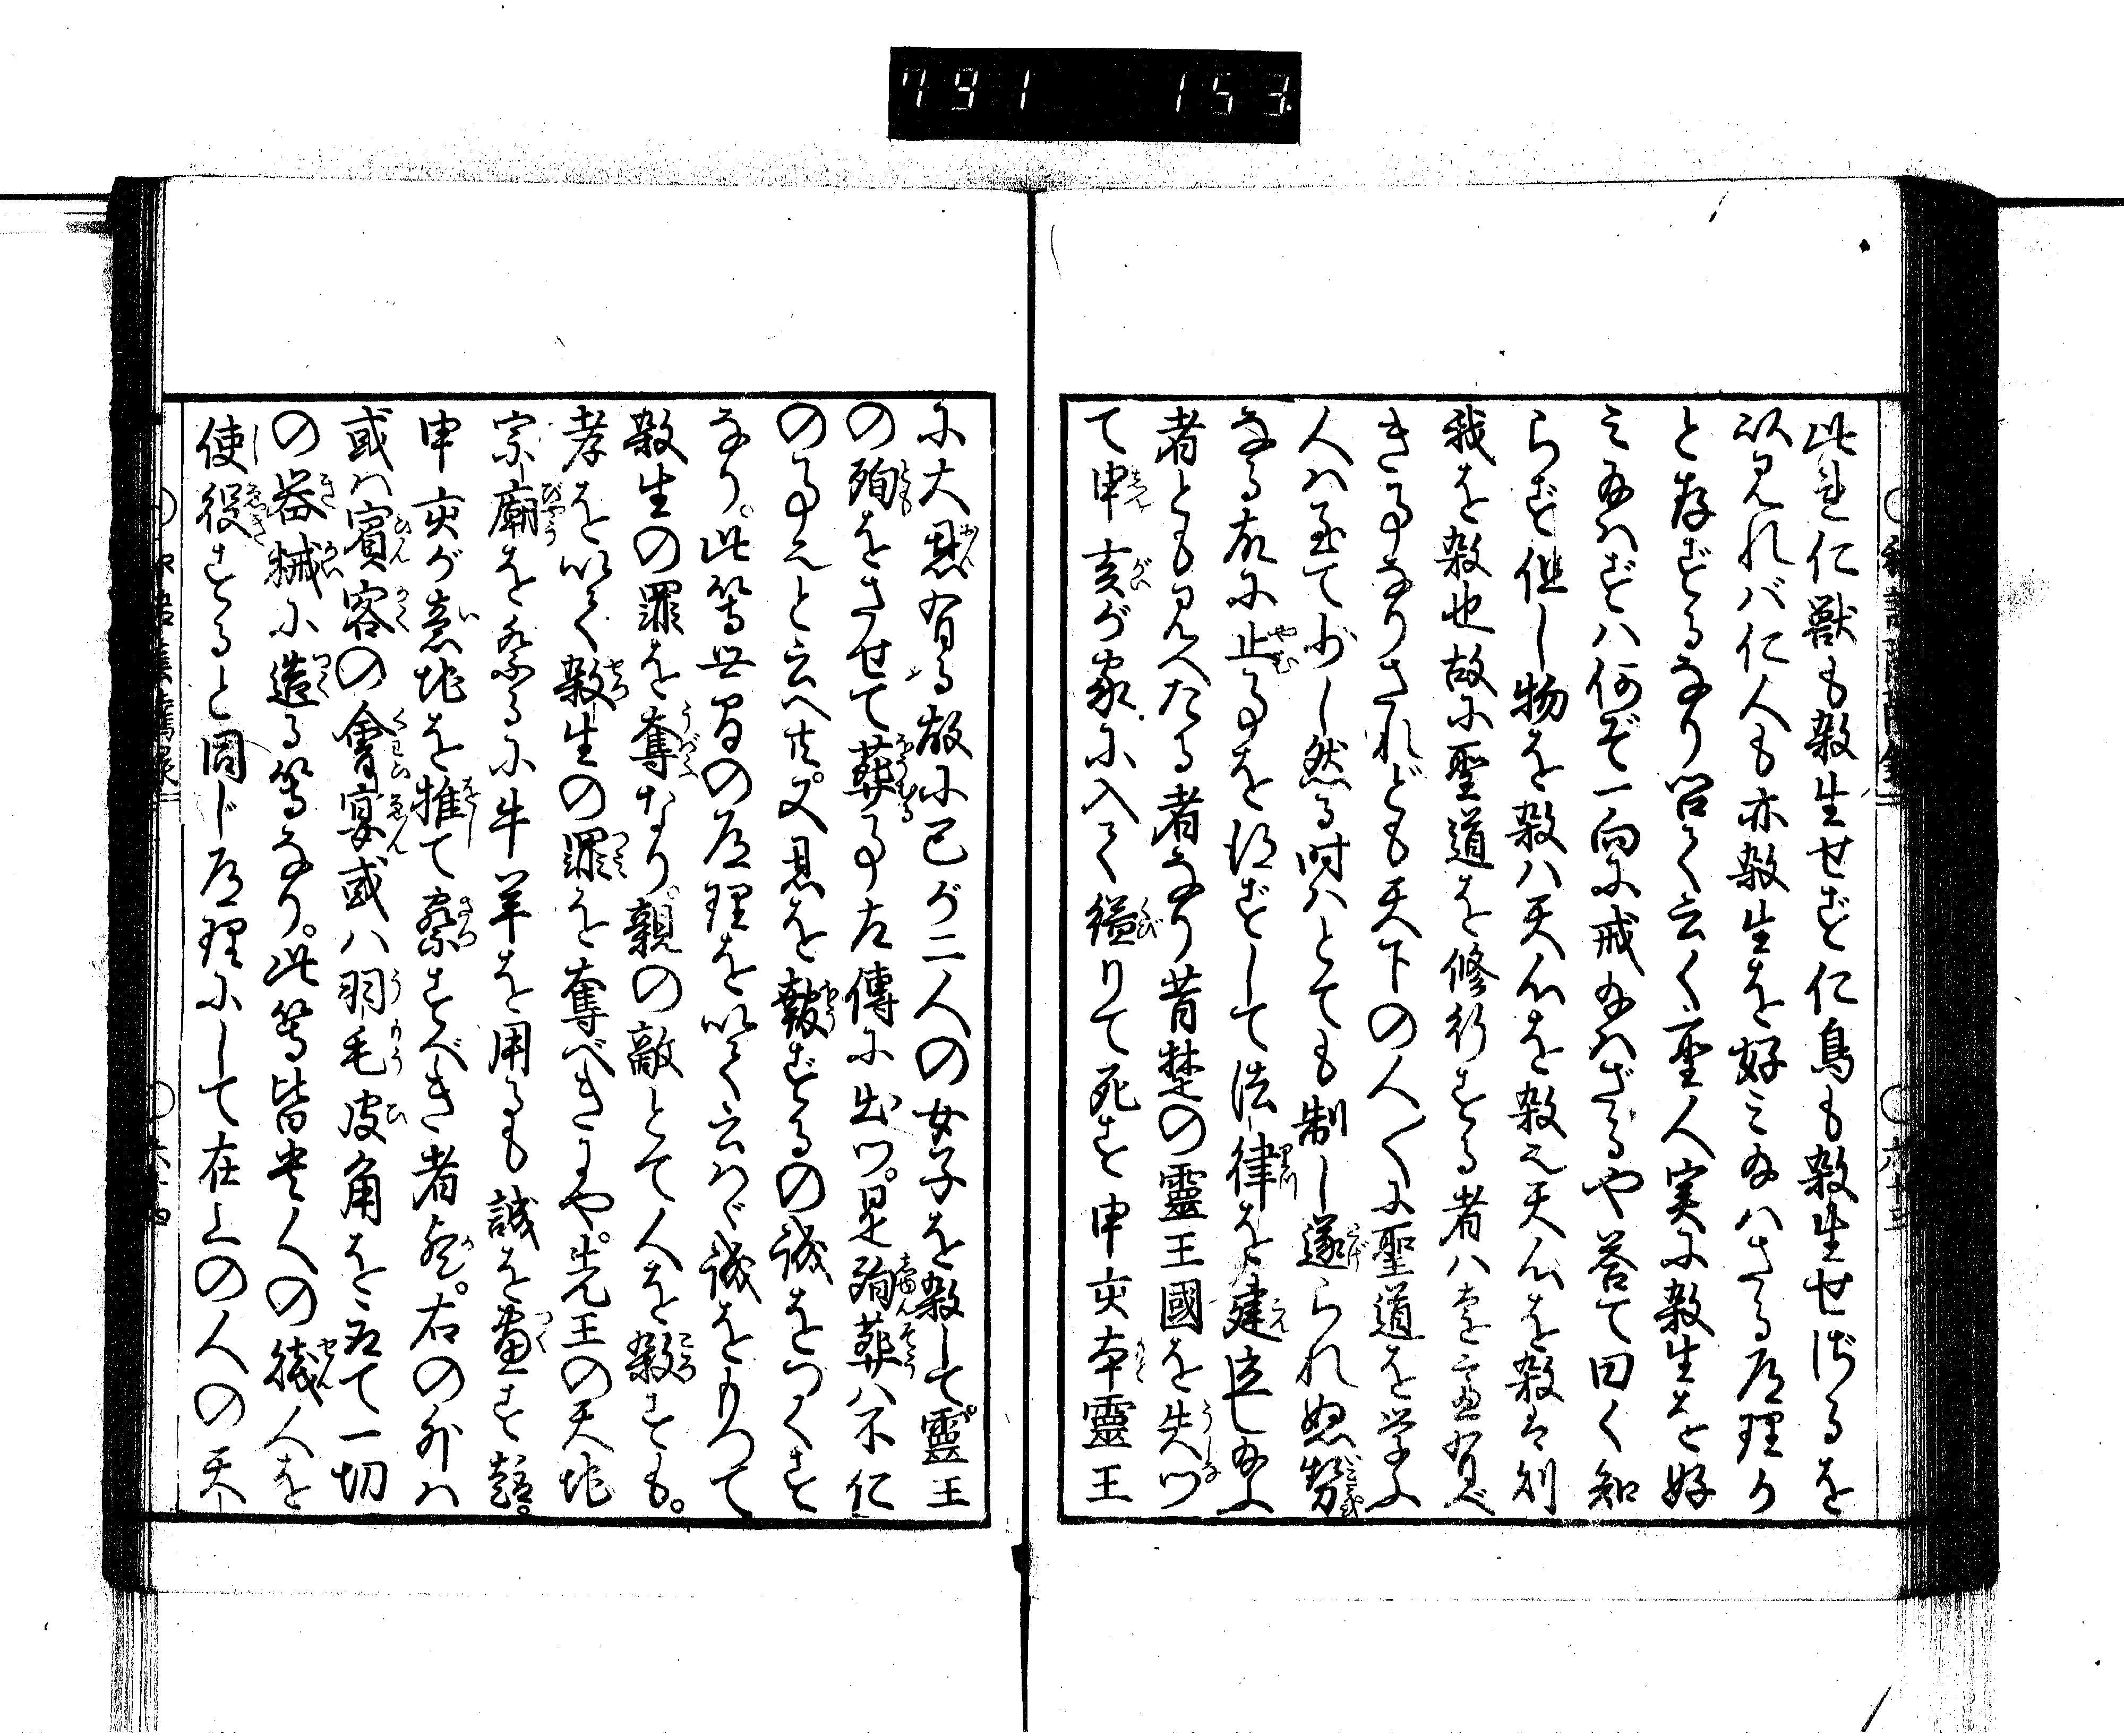 791 153
此ゆ仁獣も殺生せず仁鳥も殺生せざるを
以見れバ仁人も亦殺生を好ミ給ハさる道理か
と存ずるなり答て云く聖人実に殺生を好
ミ給ハずハ何ぞ一向に戒給ハざるや答て曰く知
らずや但し物を殺ハ天心を殺也天心を殺ハ則
我を殺也故に聖道を修行する者ハ
きる事なりされども天下の人〳〵に聖道を学ふ
人ハ至て少し然る時ハとても制し遂られぬ勢
なる故に止事を得ずして法律を建立し給ふ
者とも見へたる者なり昔楚の靈王國を失ツ
て申亥が家に入て縊りて死す申亥本靈王
に大恩有る故に己が二人の女子を殺して靈王
の殉をさせて葬る事左傳に出ツ。是殉葬ハ不仁
の事也と云へ共又恩を報ずるの誠をつくす
なり。此等世間の道理を以て云ハヾ誠をもつて
殺生の罪を奪なり。親の敵とて人を殺すも。
孝を以て殺生の罪を奪べきにや。先王の天地
宗廟を祭るに牛羊を用るも誠を盡す
申亥が意地を推て察すべき者歟。右の外ハ
或ハ賓客の會宴或ハ羽毛皮角を取て一切
の器械に造る等なり。此等皆在人の賎人を
使役すると同じ道理にして在上の人の天